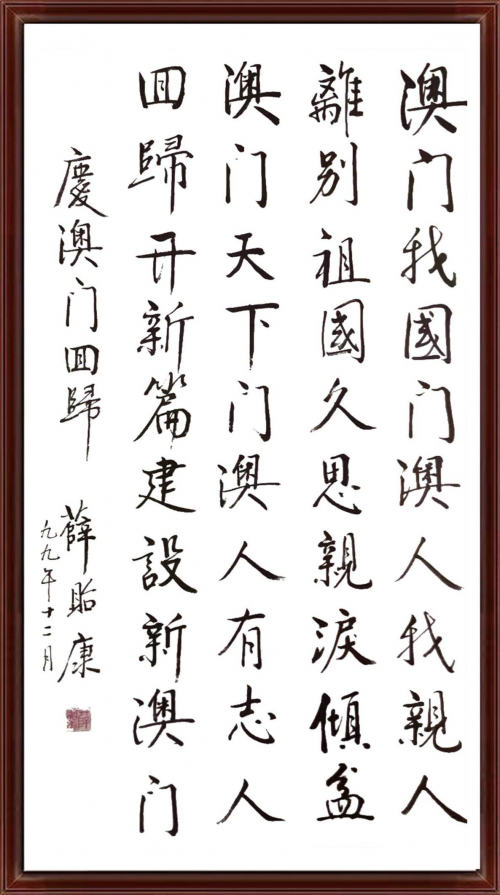 澳门我國门澳人我親人
離别祖國久思親淚傾盆
澳门天下门澳人有志人
回歸开新篇建設新澳门
慶澳门回歸
薛貽康
九九年十二月